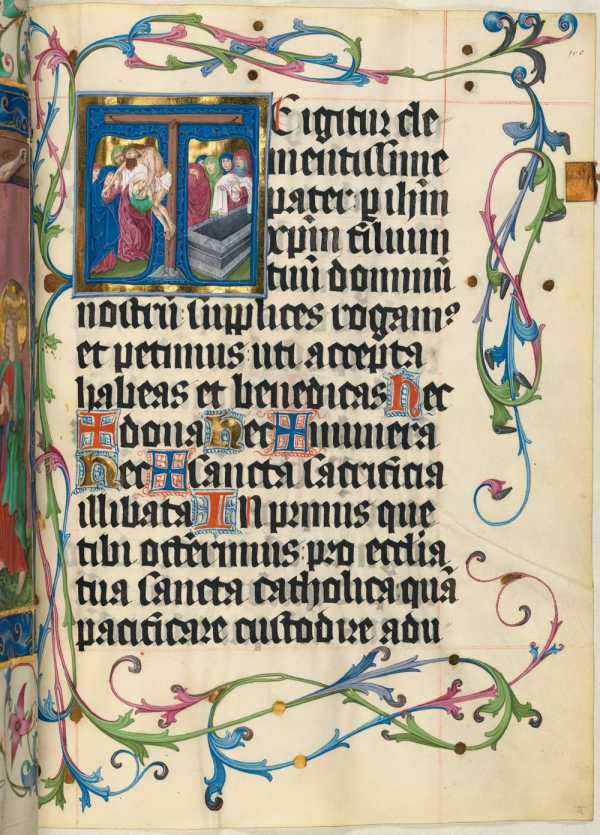 TE igitur cle
mentissime
pater p ihm̄
xp̄m filium
tuū dominū
nostrū supplices rogam⁹
et petimus uti accepta
habeas et benedicas hec
✠ dona hec ✠ munera
hec ✠ sancta sacrificia
illibata In primis que
tibi offerimus pro ecclīa
tua sancta catholica quā
pacificare custodire adu